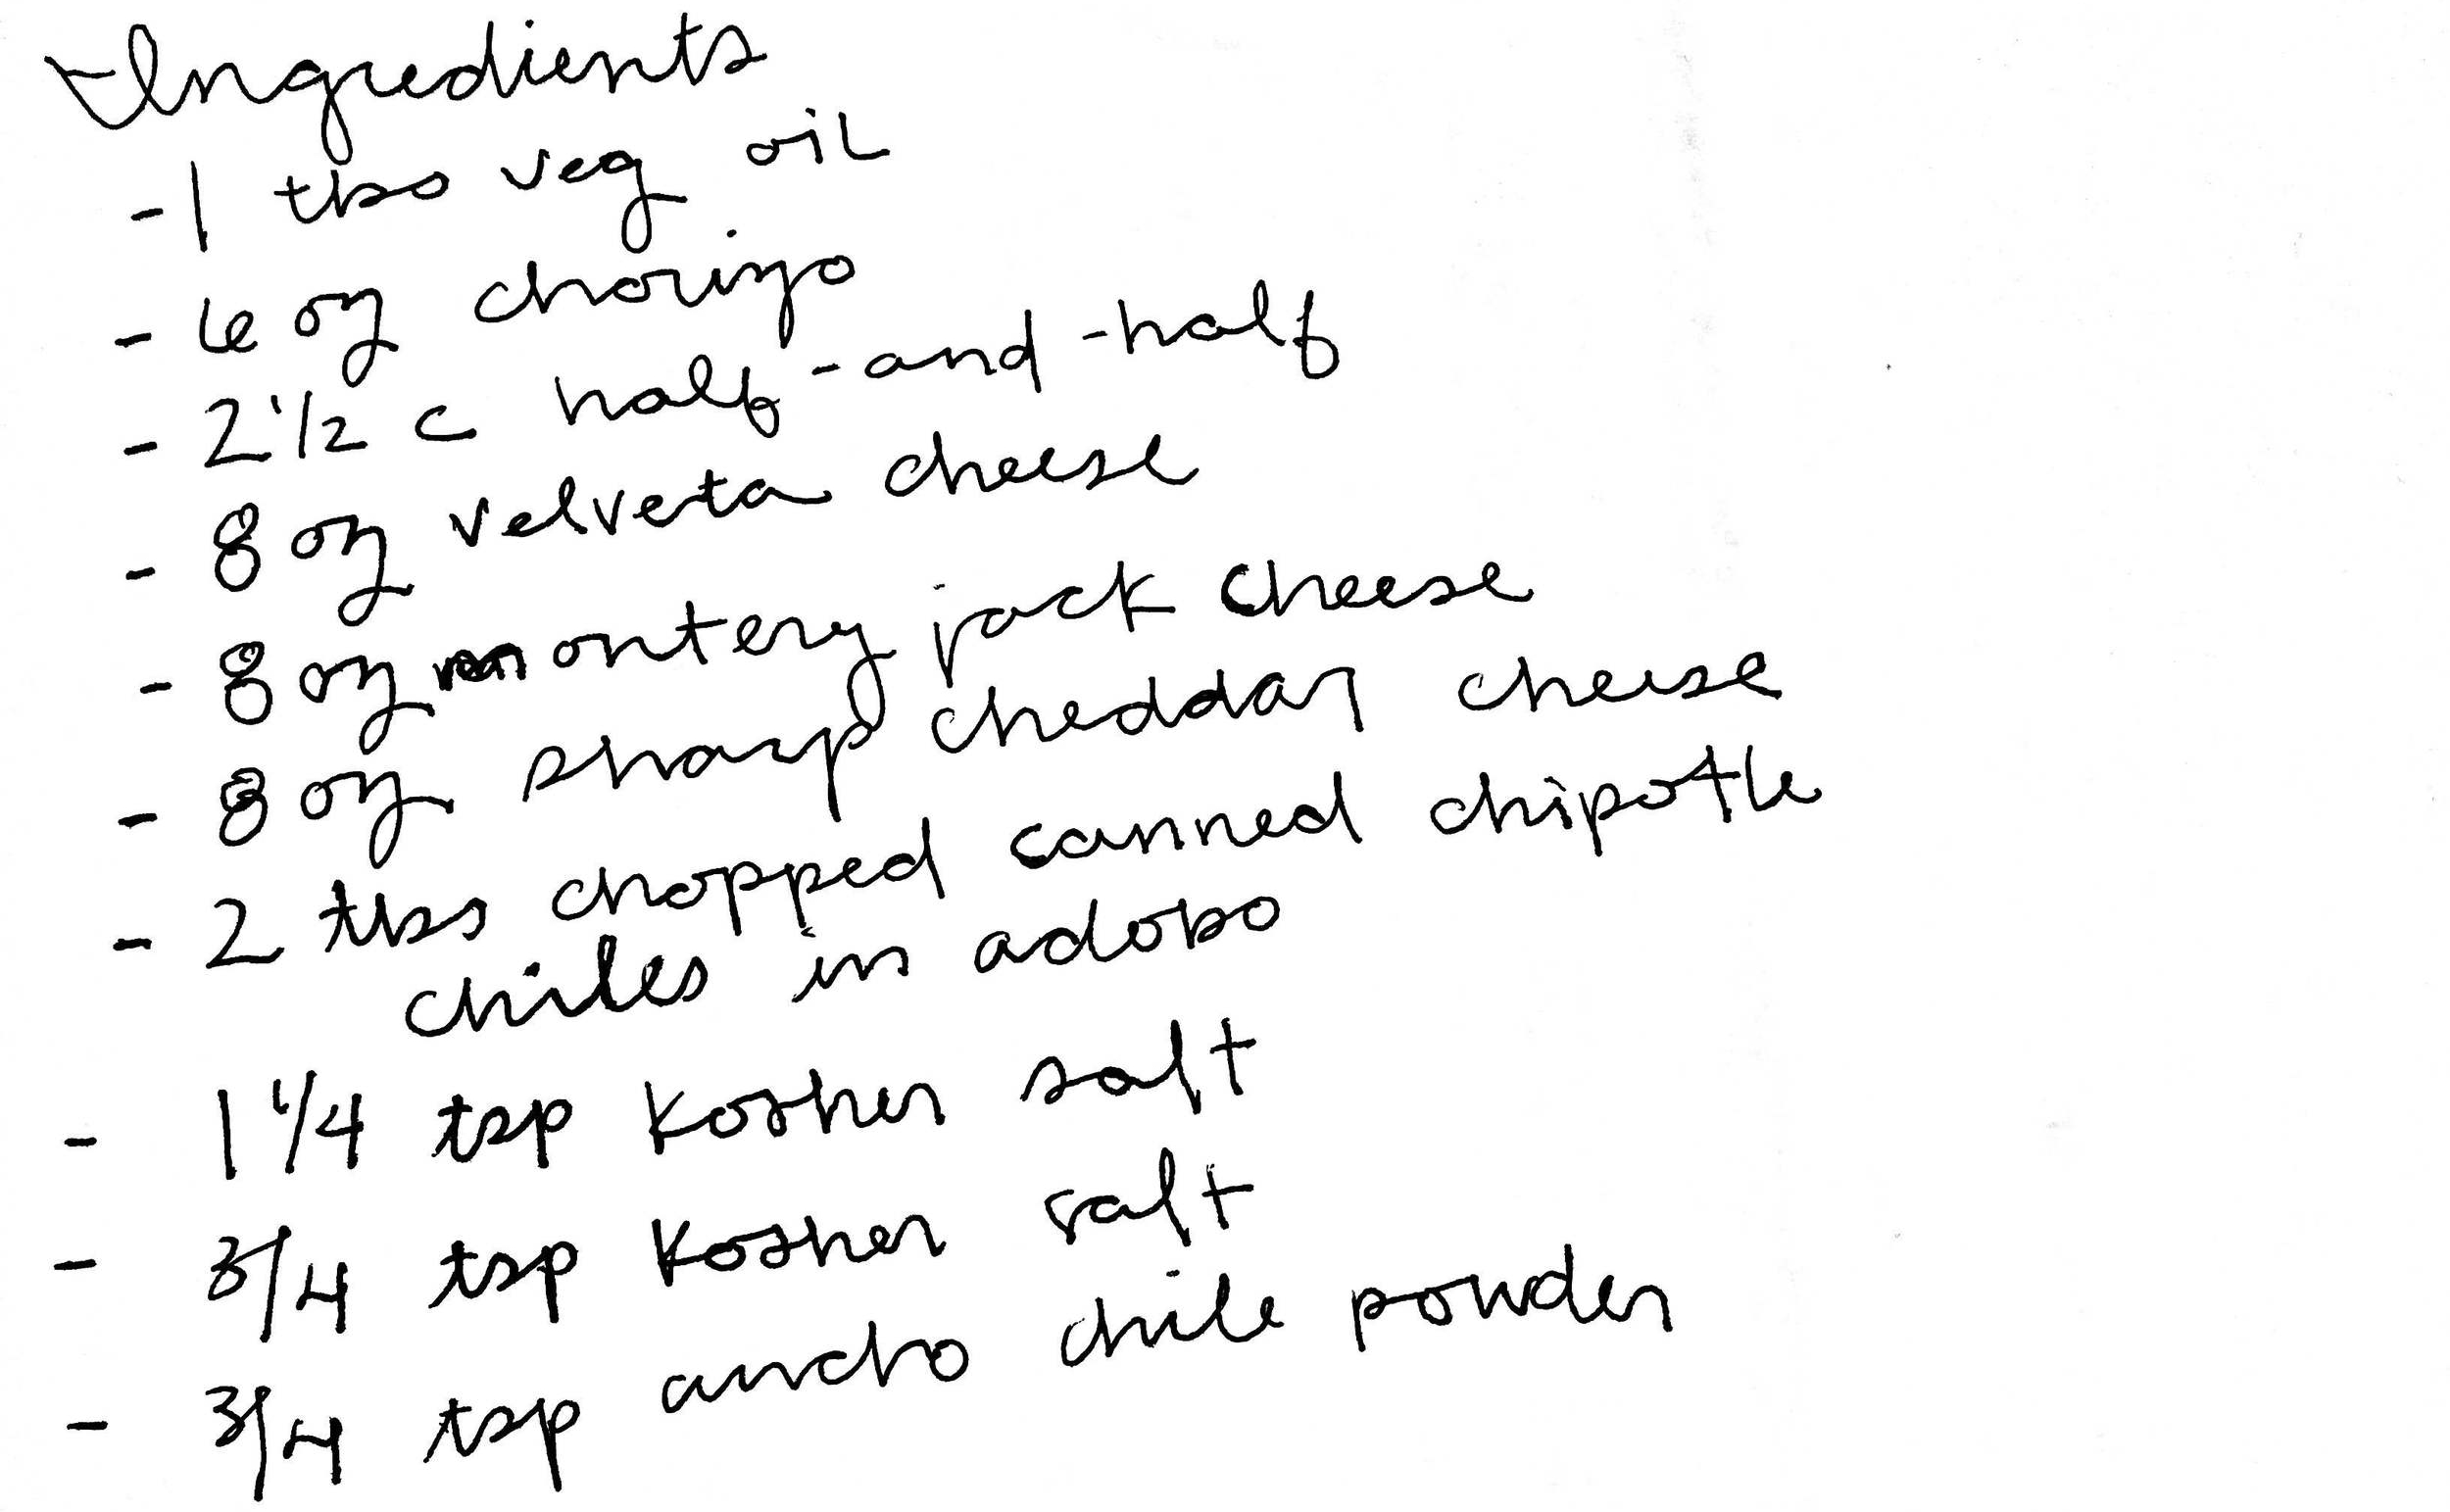 Ingredients
- 1 tbs veg oil
- 6 oz chorizo
- 2 1/2 c half-and-half
- 8 oz velveta cheese
- 8 oz montery jack cheese
- 8 oz sharp cheddar cheese
- 2 tbs chopped canned chipotle
chiles in adobo
- 1 1/4 tsp kosher salt
- 3/4 tsp kosher salt
- 3/4 tsp ancho chile powder